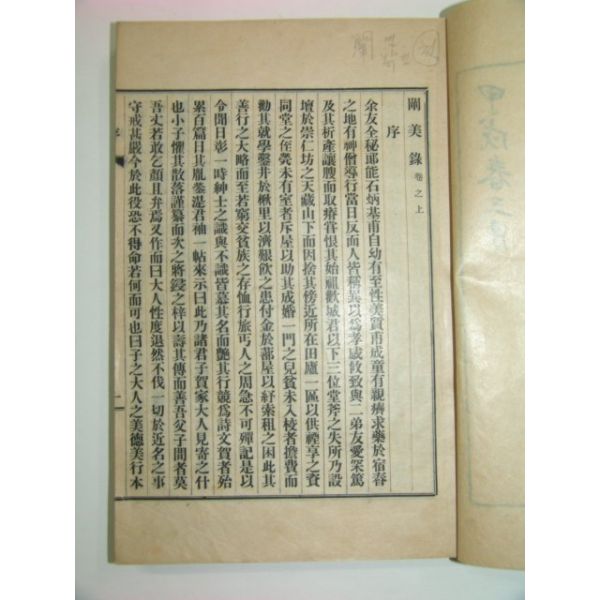 闡美錄 卷之上
序
余友全秘郎能石炳基甫自幼有至性美質甫成童有親癠求藥於宿舂
之地有神僧導行當日反面人皆稱異以爲孝感攸致與二弟友愛罙篤
及其析產讓腴而取瘠嘗恨其始祖歡城君以下三位堂斧之失所乃設
壇於崇仁坊之天藏山下面因捨其傍近所在田廬一區以供禋享之資
同堂之侄煢未有室者斥屋以助其成婚一門之兒貧未入棱者擔費而
勸其就學鑿井於楸里以濟艱飮之患付金於蔀屋以紓索租之困此其
善行之大略而至若窮交貧族之存恤行旅丐人之周急不可殫記是以
令聞日彰一時紳士之識與不識皆慕其名而艶其行競爲詩文賀者殆
累百篇日其胤鎣湜君袖一帖來示曰此乃諸君子賀家大人見寄之什
也小子懼其散落謹纂而次之將鋟之梓以壽其傳而善吾父子間者莫
吾丈若敢乞顏且弁焉又作而曰大人性度退然不伐一切於近名之事
守戒甚嚴今於此役恐不得命若何而可也曰子之大人之美德美行本
序
一
闡